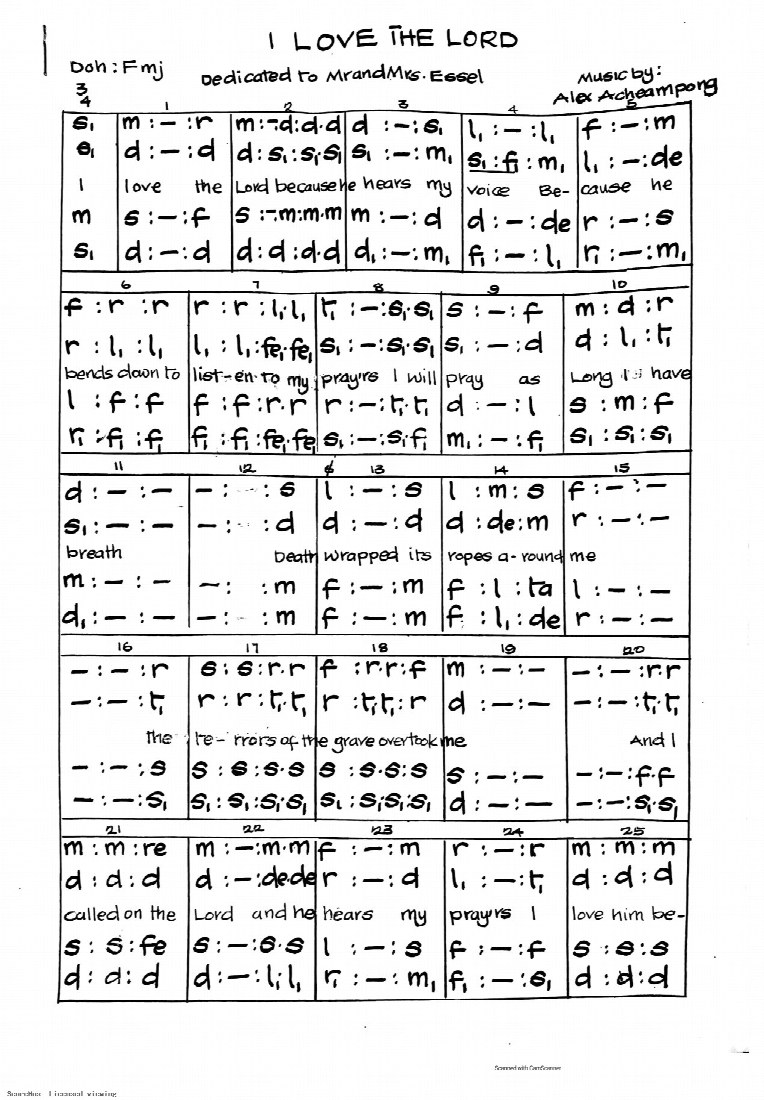 I LOVE THE LORD
Doh : F mj
Dedicated to Mr and Mrs. Essel
Music by:
Alex Acheampong
3
4
1 2 3 4 5
s₁ | m : — : r | m : -·d : d·d | d : — : s₁ | l₁ : — : l₁ | f : — : m
s₁ | d : — : d | d : s₁ : s₁·s₁ | s₁ : — : m₁ | s₁ : f₁ : m₁ | l₁ : — : de
I love the Lord because he hears my voice Be- cause he
m | s : — : f | s : -·m : m·m | m : — : d | d : — : de | r : — : s
s₁ | d : — : d | d : d : d·d | d₁ : — : m₁ | f₁ : — : l₁ | r₁ : — : m₁
6 7 8 9 10
f : r : r | r : r : l₁·l₁ | t₁ : — : s₁·s₁ | s : — : f | m : d : r
r : l₁ : l₁ | l₁ : l₁ : fe₁·fe₁ | s₁ : — : s₁·s₁ | s₁ : — : d | d : l₁ : t₁
bends down to list-en to my pray'rs I will pray as Long have
l : f : f | f : f : r·r | r : — : t₁·t₁ | d : — : l | s : m : f
r₁ : f₁ : f₁ | f₁ : f₁ : fe₁·fe₁ | s₁ : — : s₁·f₁ | m₁ : — : f₁ | s₁ : s₁ : s₁
11 12 13 14 15
d : — : — | — : : s | l : — : s | l : m : s | f : — : —
s₁ : — : — | — : : d | d : — : d | d : de : m | r : — : —
breath Death wrapped its ropes a-round me
m : — : — | — : : m | f : — : m | f : l : ta | l : — : —
d₁ : — : — | — : : m | f : — : m | f : l₁ : de | r : — : —
16 17 18 19 20
— : — : r | s : s : r·r | f : r·r : f | m : — : — | — : — : r·r
— : — : t₁ | r : r : t₁·t₁ | r : t₁·t₁ : r | d : — : — | — : — : t₁·t₁
the te-rrors of the grave overtook me And I
— : — : s | s : s : s·s | s : s·s : s | s : — : — | — : — : f·f
— : — : s₁ | s₁ : s₁ : s₁·s₁ | s₁ : s₁·s₁ : s₁ | d : — : — | — : — : s₁·s₁
21 22 23 24 25
m : m : re | m : — : m·m | f : — : m | r : — : r | m : m : m
d : d : d | d : — : de·de | r : — : d | l₁ : — : t₁ | d : d : d
called on the Lord and he hears my pray'rs I love him be-
s : s : fe | s : — : s·s | l : — : s | f : — : f | s : s : s
d : d : d | d : — : l₁·l₁ | r₁ : — : m₁ | f₁ : — : s₁ | d : d : d
Scanned with CamScanner